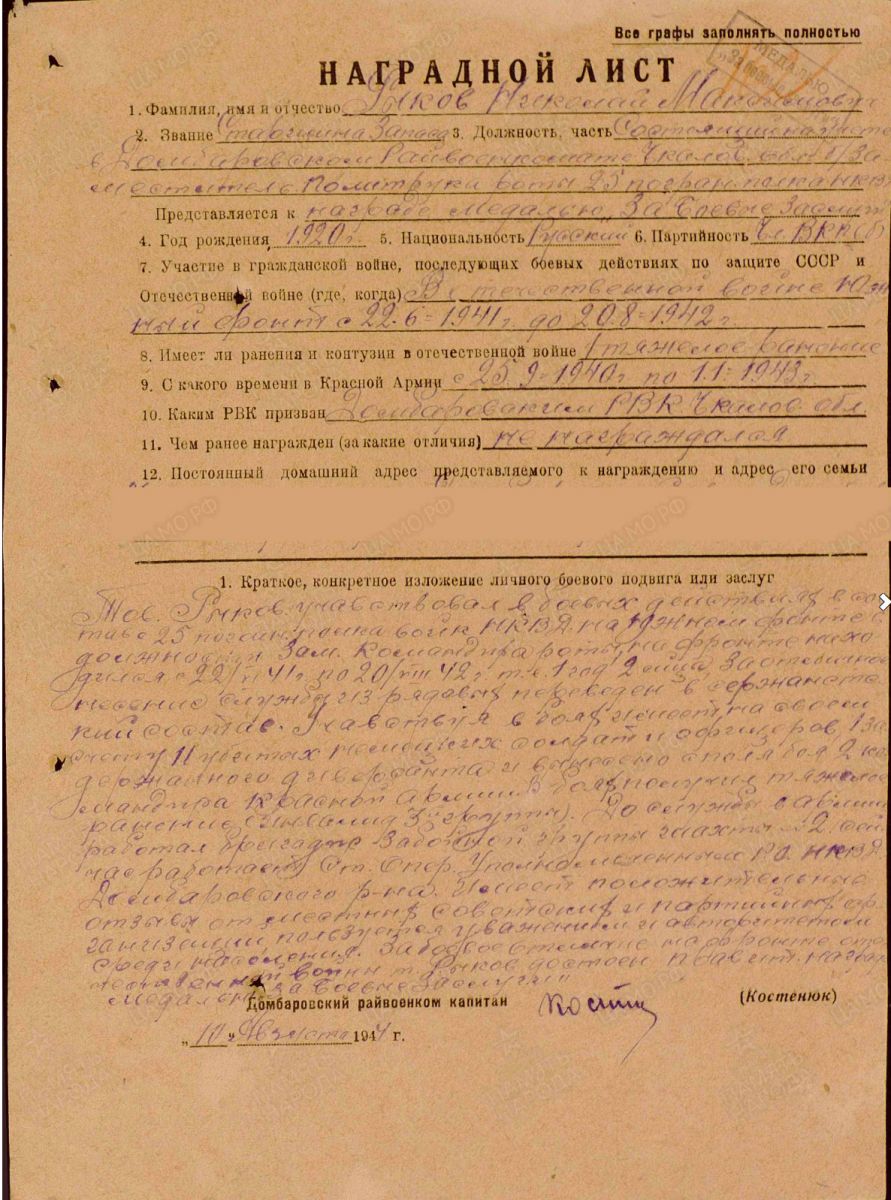 Все графы заполнять полностью
МЕДАЛЬЮ
НАГРАДНОЙ ЛИСТ
1. Фамилия, имя и отчество Рыков Николай Максимович
2. Звание Старшина Запаса 3. Должность, часть Состоящий на учете
в Домбаровском Райвоенкомате Чкалов. обл. /за
меститель Политрука роты 25 погран. полка НКВД
Представляется к награде Медалью "За Боевые Заслуги
4. Год рождения 1920 г. 5. Национальность Русский 6. Партийность Чл. ВКП(б)
7. Участие в гражданской войне, последующих боевых действиях по защите СССР и
Отечественной войне (где, когда) В Отечественной войне Юж
ный фронт с 22.6-1941 г. до 20.8-1942 г.
8. Имеет ли ранения и контузии в отечественной войне 1 тяжелое ранение
9. С какого времени в Красной Армии с 25.9-1940 г. по 1.1-1943 г
10. Каким РВК призван Домбаровским РВК Чкалов. обл
11. Чем ранее награжден (за какие отличия) не награждался
12. Постоянный домашний адрес представляемого к награждению и адрес его семьи
1. Краткое, конкретное изложение личного боевого подвига или заслуг
Тов. Рыков участвовал в боевых действиях в сос
таве 25 погран. полка войск НКВД на Южном фронте в
должности Зам. Командира роты, на фронте нахо
дился с 22/VI 41 г. по 20/VIII 42 г. т.е. 1 год 2 м-ца. За отличное
несение службы из рядовых переведен в сержантс
кий состав. Участвуя в боях имеет на своем
счету 11 убитых немецких солдат и офицеров, 1 за
держанного диверсанта и вынесено с поля боя 2 ко
мандира Красной Армии. В боях получил тяжелое
ранение (Инвалид 3й группы). До службы в армии
работал бригадир Забойной группы шахты №2. Сей
час работает Ст. Опер. Уполномоченным РО НКВД
Домбаровского р-на. Имеет положительные
отзывы от местных советских и партийных ор
ганизаций, пользуется уважением и авторитетом
среди населения. За боевое отличие на фронте оте
чественной войны т. Рыков достоен правит. награды
Медалью "За Боевые Заслуги"
Домбаровский райвоенком капитан (Костенюк)
„10" Августа 1944 г.
ЦАМО РФ
ПАМЯТЬ НАРОДА